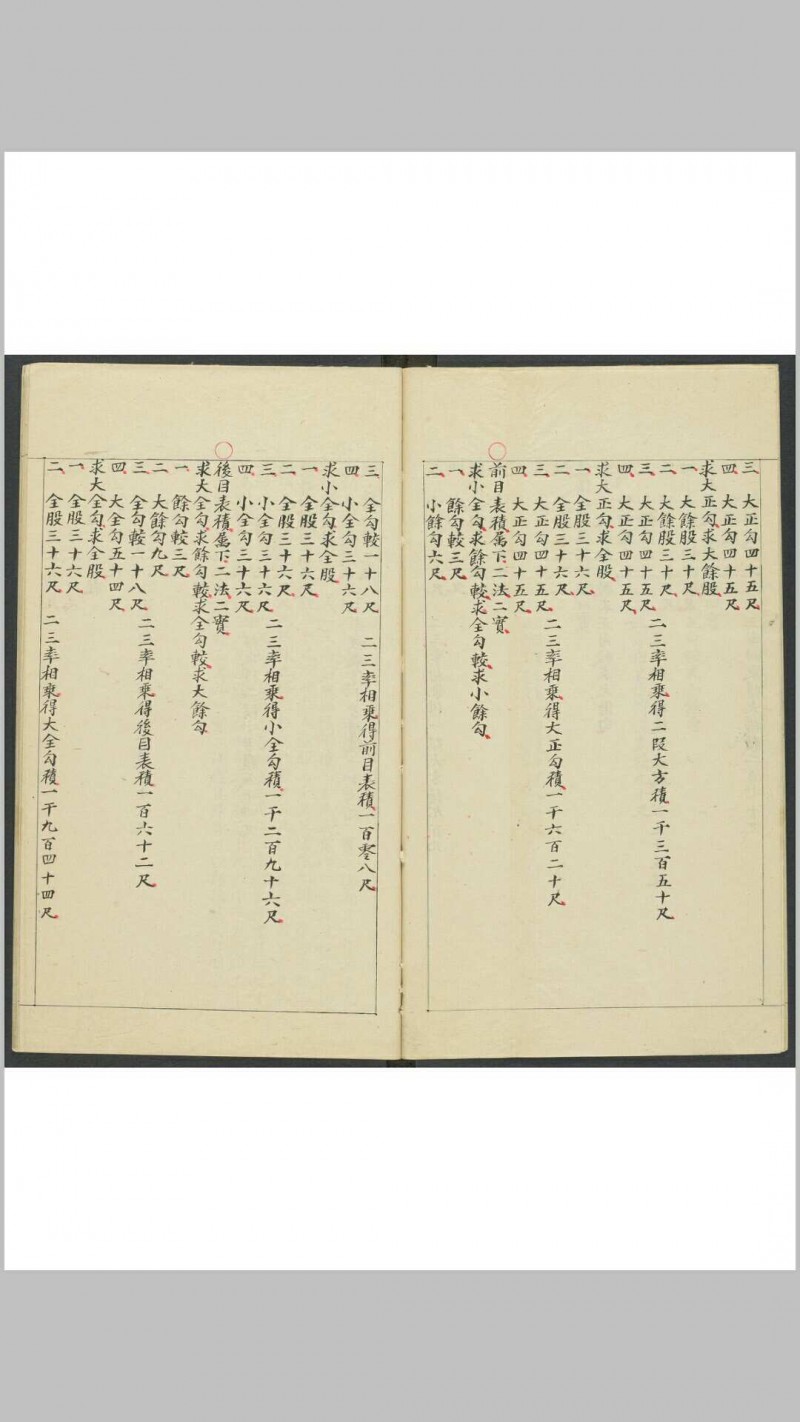 三 大正勾四十五尺
四 大正勾四十五尺
求大正勾求大餘股
一 大餘股三十尺
二 大餘股三十尺 二三率相乘得二段大方積一千三百五十尺
三 大正勾四十五尺
四 大正勾四十五尺
求大正勾求全股
一 全股三十六尺
二 全股三十六尺 二三率相乘得大正勾積一千六百二十尺
三 大正勾四十五尺
四 大正勾四十五尺
前目表積為下二法二實
求小全勾求餘勾較求全勾較求小餘勾
一 餘勾較三尺
二 小餘勾六尺
三 全勾較一十八尺 二三率相乘得前目表積一百零八尺
四 小全勾三十六尺
求小全勾求全股
一 全股三十六尺
二 全股三十六尺 二三率相乘得小全勾積一千二百九十六尺
三 小全勾三十六尺
四 小全勾三十六尺
後目表積為下二法二實
求大全勾求餘勾較求全勾較求大餘勾
一 餘勾較三尺
二 大餘勾九尺 二三率相乘得後目表積一百六十二尺
三 全勾較一十八尺
四 大全勾五十四尺
求大全勾求全股
一 全股三十六尺
二 全股三十六尺 二三率相乘得大全勾積一千九百四十四尺